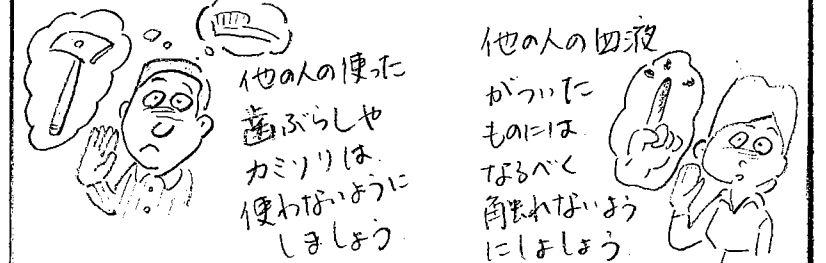 他の人の使った
歯ぶらしや
カミソリは
使わないように
しましょう
他の人の血液
がついた
ものには
なるべく
触れないよう
にしましょう